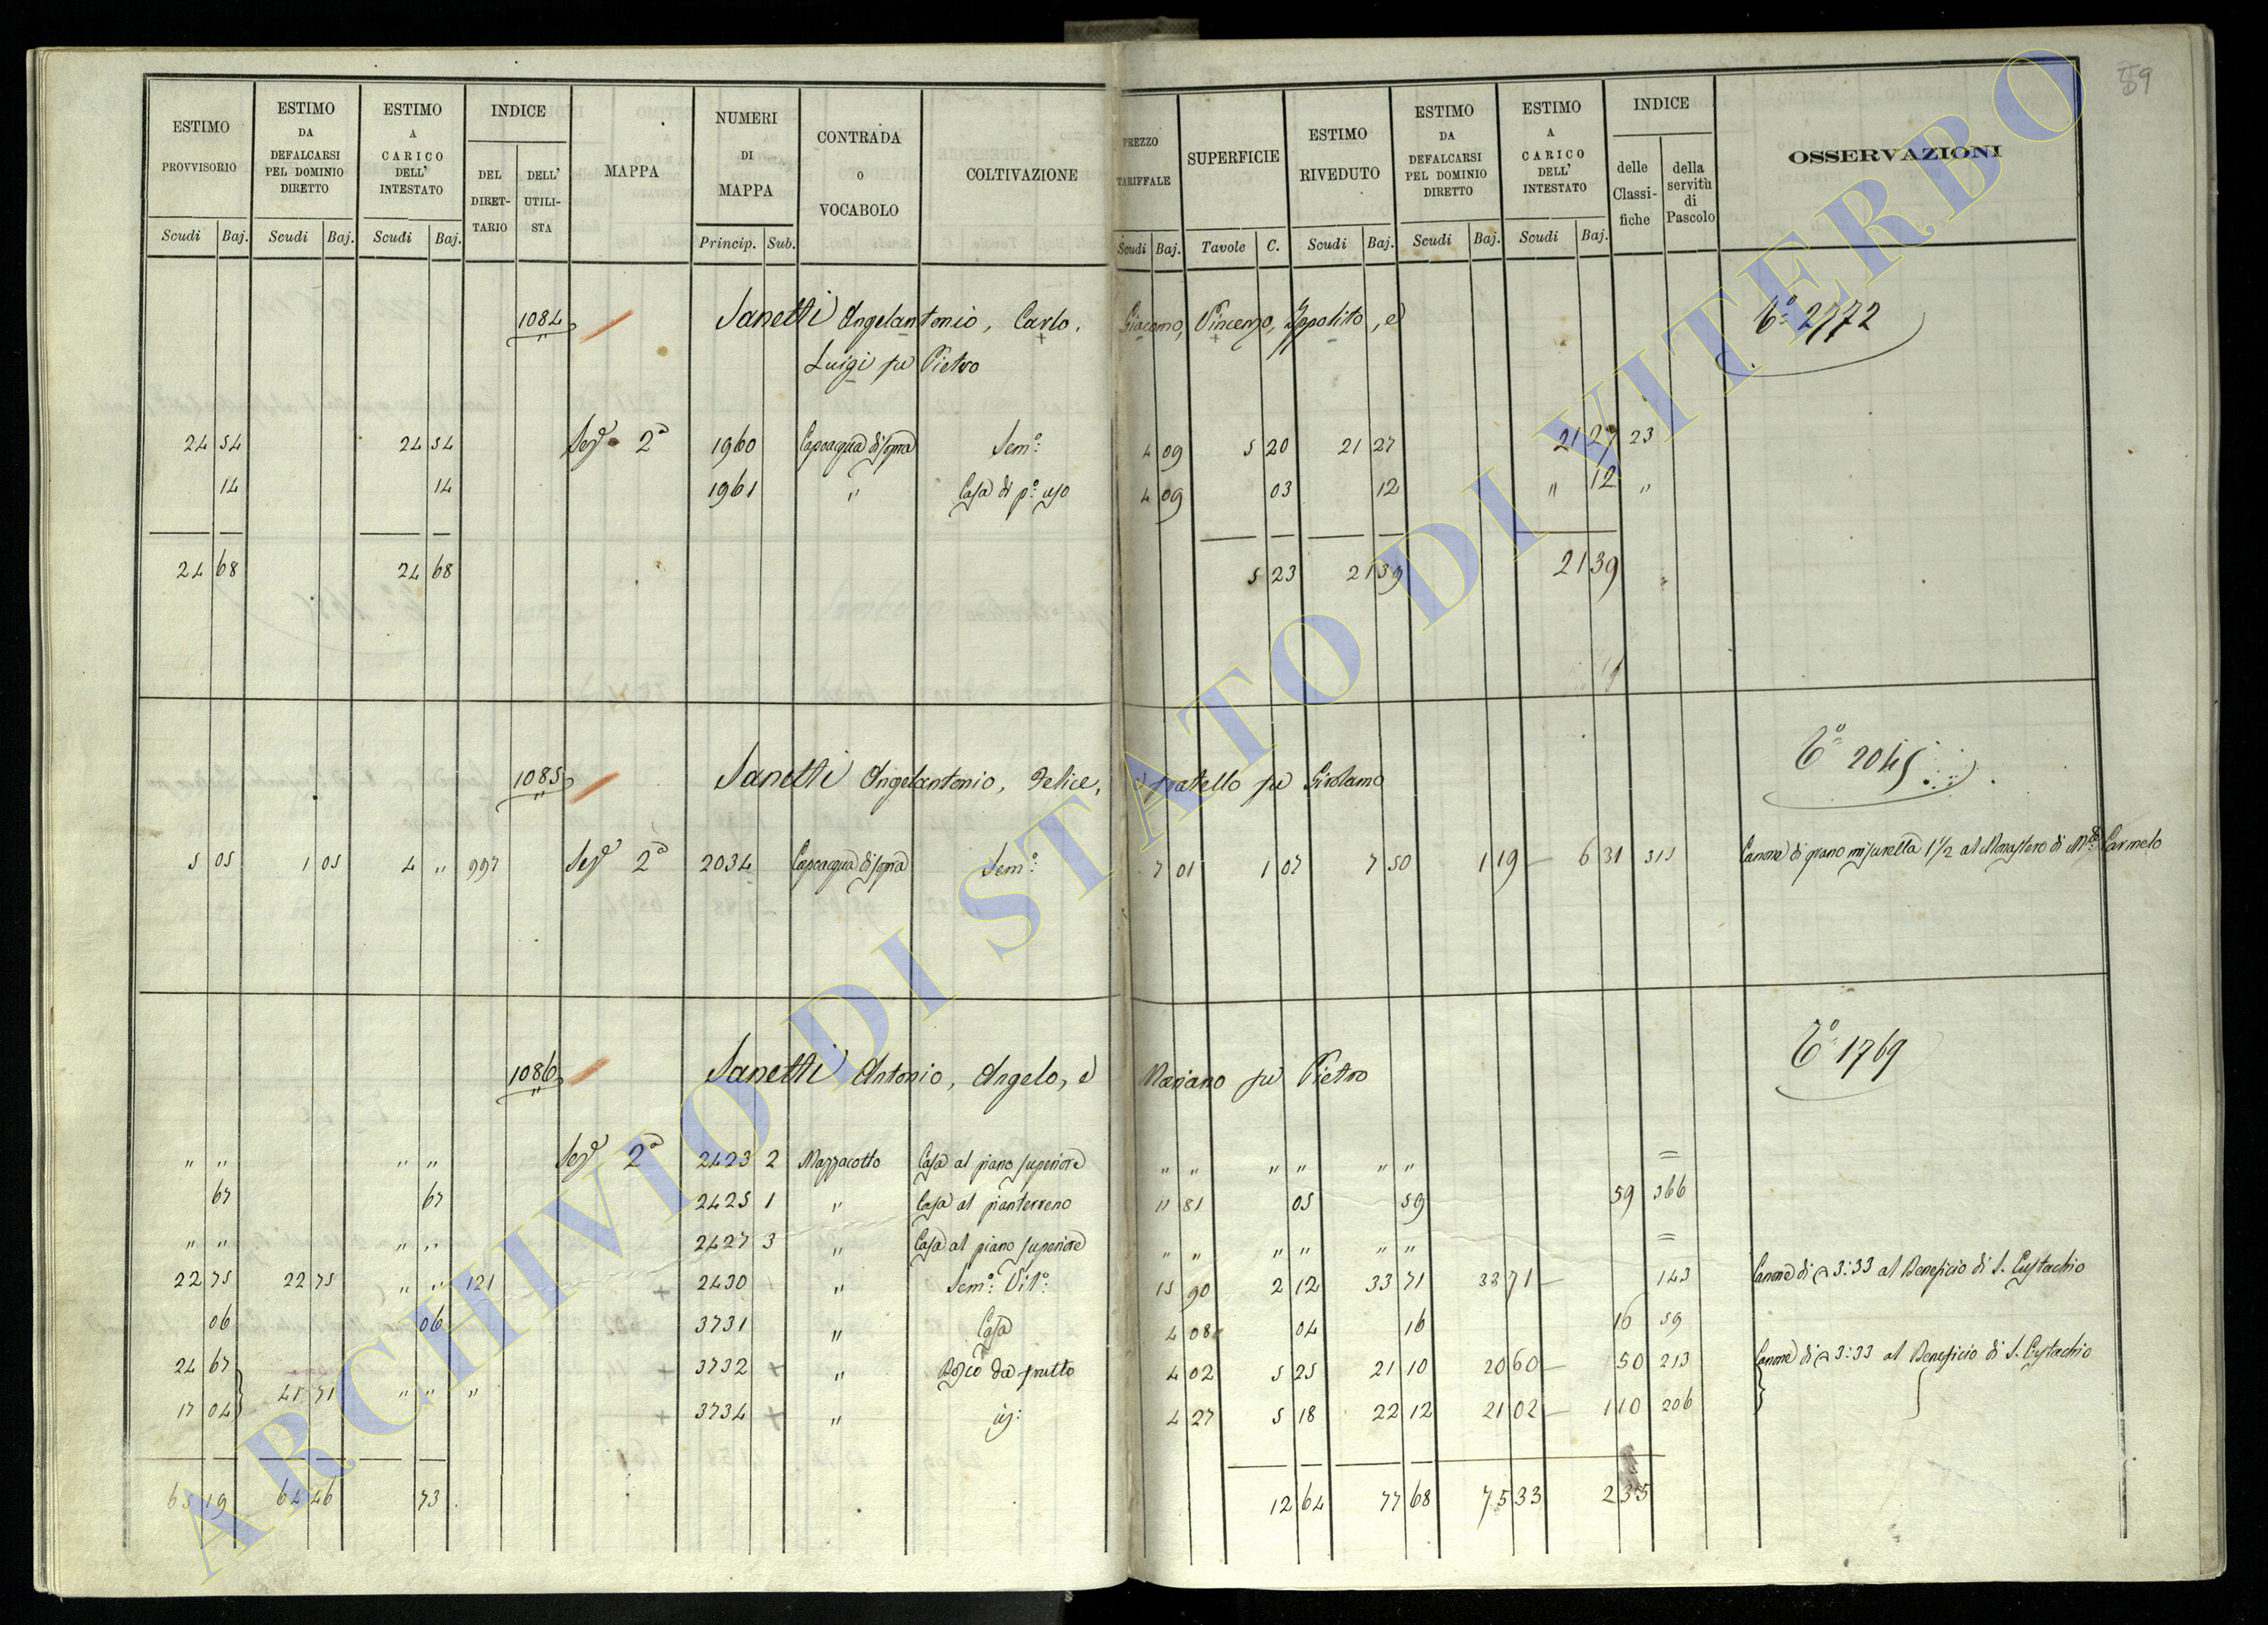 59
ESTIMO PROVVISORIO | ESTIMO DA DEFALCARSI PEL DOMINIO DIRETTO | ESTIMO A CARICO DELL' INTESTATO | INDICE | MAPPA | NUMERI DI MAPPA | CONTRADA O VOCABOLO | COLTIVAZIONE | PREZZO TARIFFALE | SUPERFICIE | ESTIMO RIVEDUTO | ESTIMO DA DEFALCARSI PEL DOMINIO DIRETTO | ESTIMO A CARICO DELL' INTESTATO | INDICE | OSSERVAZIONI
DEL DIRETTARIO | DELL' UTILISTA | delle Classifiche | della servitù di Pascolo
Scudi Baj. | Scudi Baj. | Scudi Baj. | Princip. Sub. | Scudi Baj. | Tavole C. | Scudi Baj. | Scudi Baj. | Scudi Baj.
1084 Sanetti Angelantonio, Carlo, Giacomo, Vincenzo, Ippolito, e 2772
Luigi fu Pietro
24 54 24 54 Sez.e 2a 1960 Capoacqua di sopra Sem.o 4 09 5 20 21 27 21 27 23
14 14 1961 " Casa di p.o uso 4 09 03 12 " 12 "
24 68 24 68 5 23 21 39 21 39
1085 Sanetti Angelantonio, Felice, e fratello fu Girolamo 2045
5 05 1 05 4 " 997 Sez.e 2a 2034 Capoacqua di sopra Sem.o 7 01 1 07 7 50 1 19 6 31 315 Canone di grano misurella 1 1/2 al Monastero di M.te Carmelo
1086 Sanetti Antonio, Angelo, e Mariano fu Pietro 1769
" " " " Sez.e 2a 2423 2 Mazzacotto Casa al piano superiore " " " " " " =
67 67 2425 1 " Casa al pianterreno 11 81 05 59 59 366
" " " " 2427 3 " Casa al piano superiore " " " " " " =
22 75 22 75 " " 121 + 2430 " Sem.o Vit.o 15 90 2 12 33 71 33 71 143 Canone di 3:33 al Beneficio di S. Eustachio
06 06 3731 " Casa 4 08 04 16 16 59
24 67 + 3732 + " Bosco da frutto 4 02 5 25 21 10 20 60 50 213 Canone di 3:33 al Beneficio di S. Eustachio
17 04 41 71 " " " + 3734 + " id: 4 27 5 18 22 12 21 02 1 10 206
65 19 64 46 73 12 64 77 68 75 33 2 35
ARCHIVIO DI STATO DI VITERBO